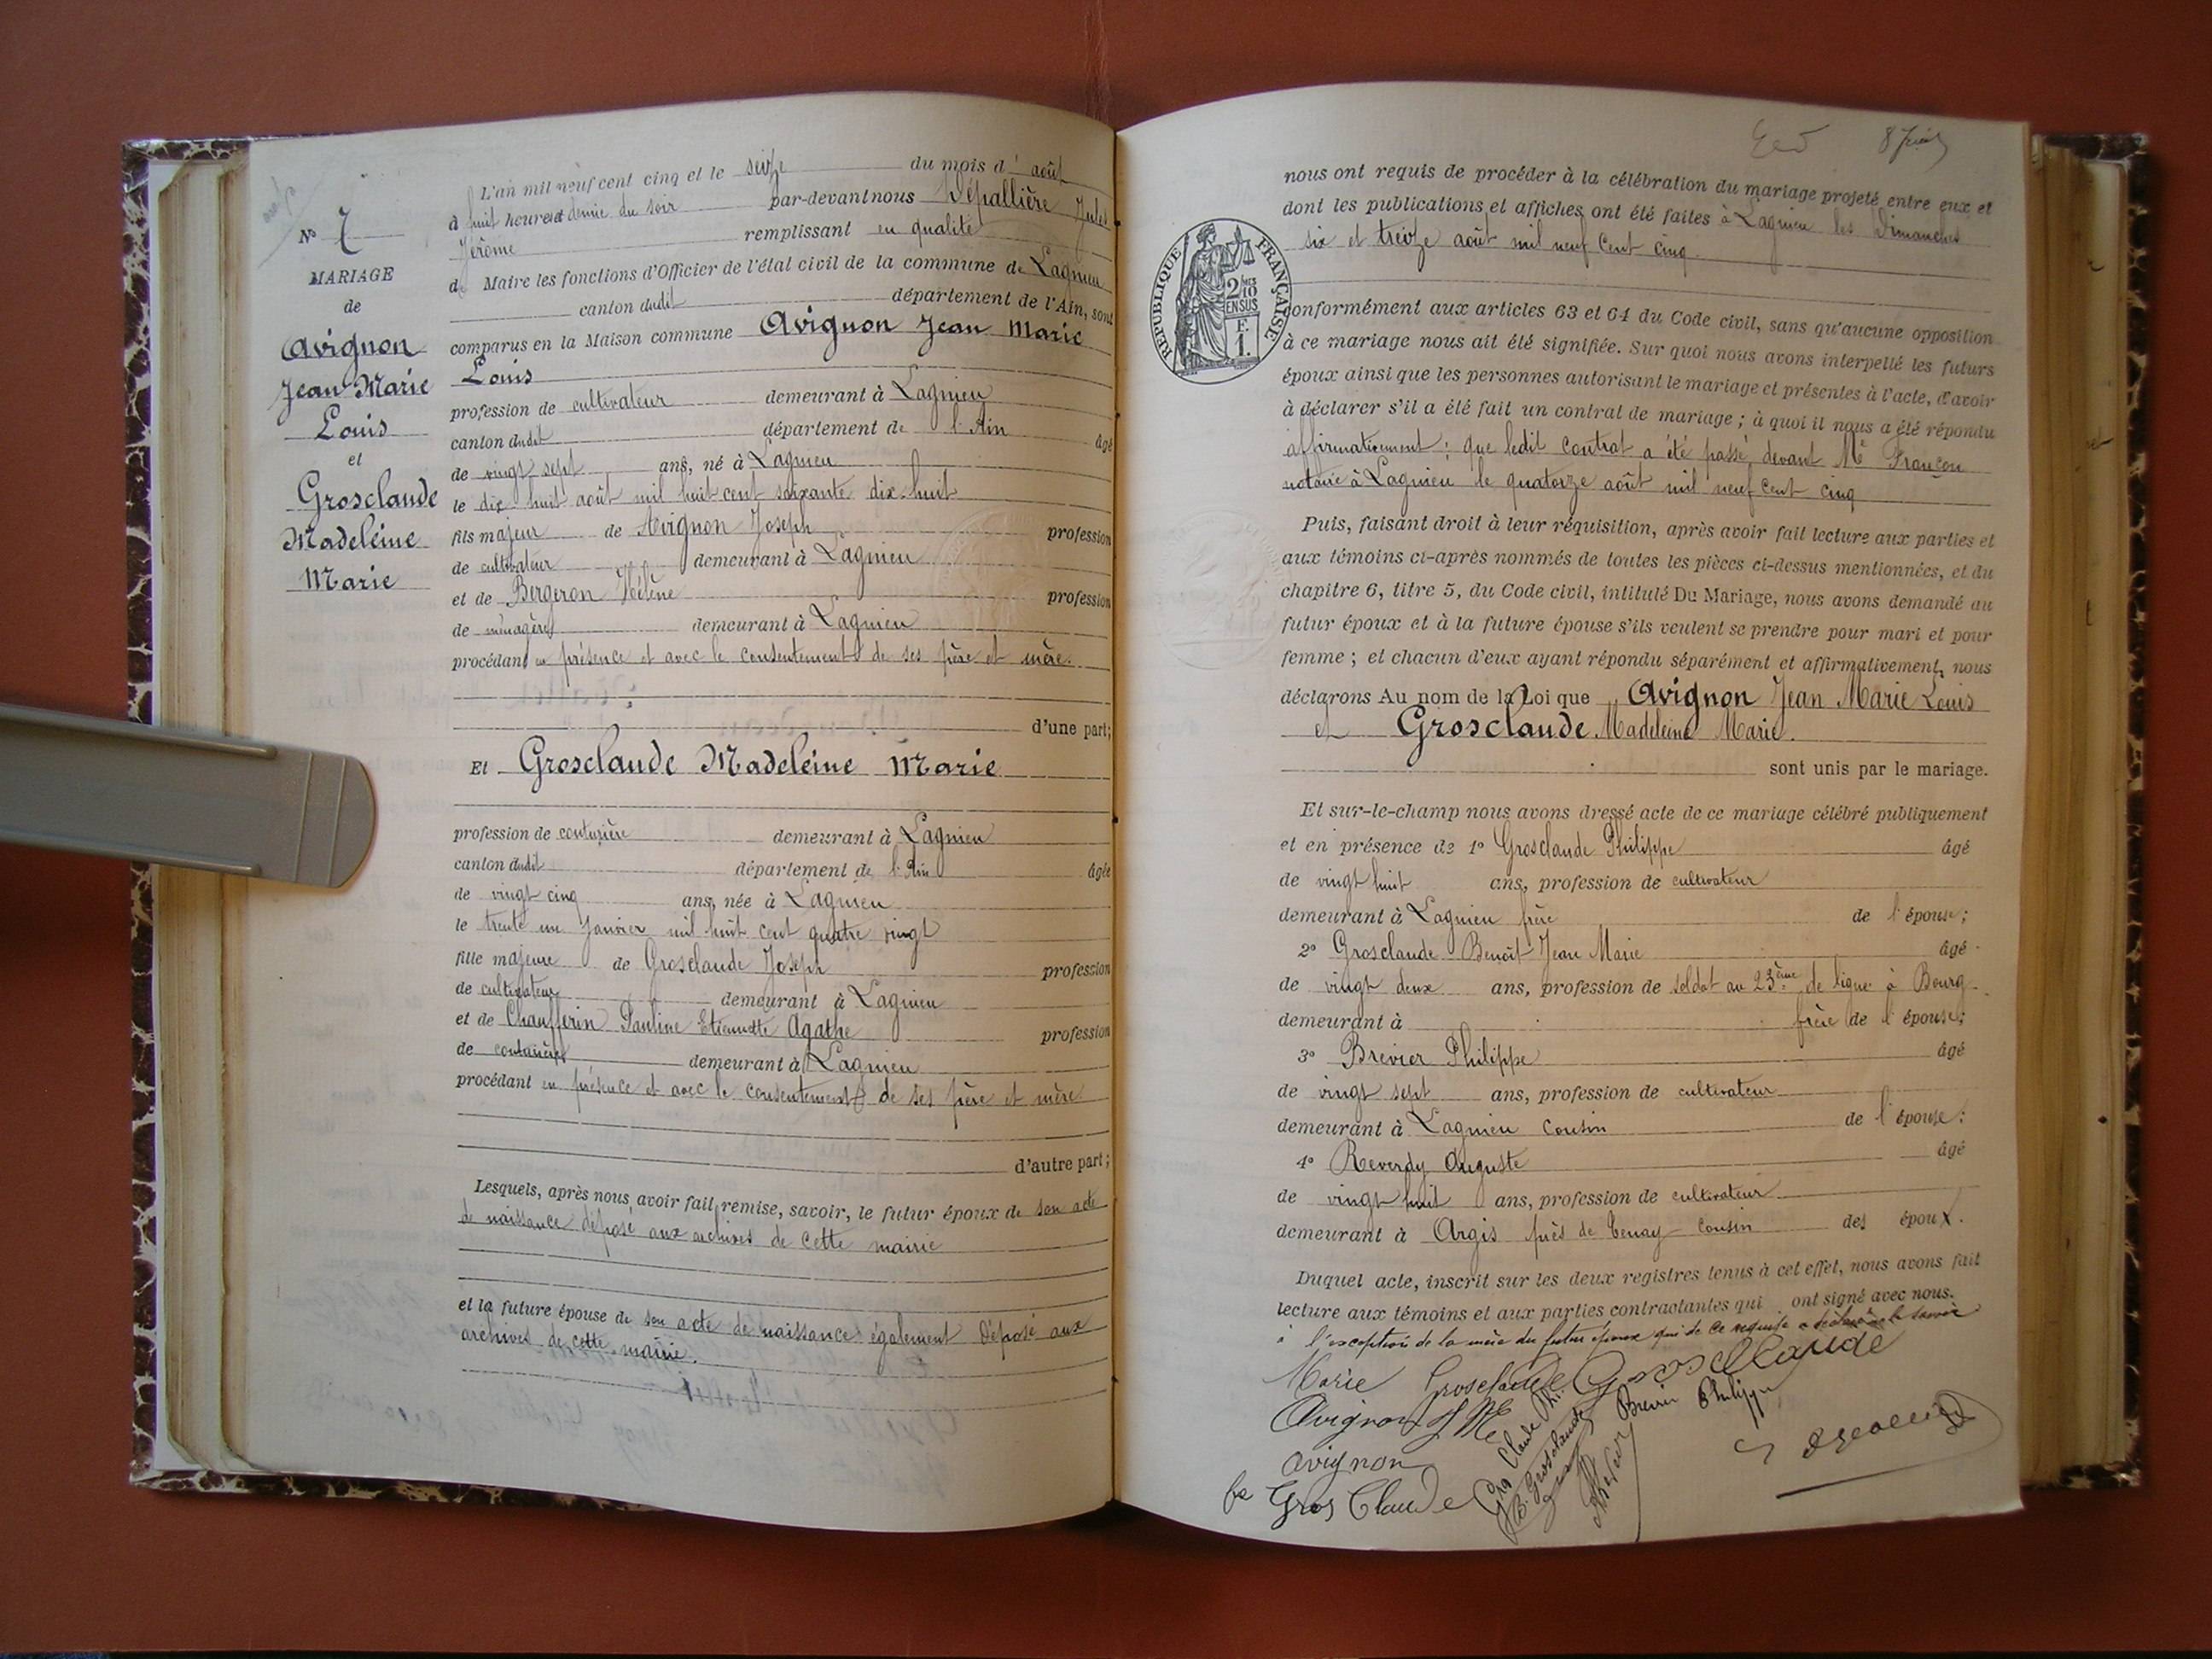 N° 7
MARIAGE
de
Avignon
Jean Marie
Louis
et
Grosclaude
Madeleine
Marie
L'an mil neuf cent cinq et le seize du mois d'août
à huit heures et demie du soir par-devant nous Dépallière Jules
Jérôme remplissant en qualité
de Maire les fonctions d'Officier de l'état civil de la commune de Lagnieu
canton dudit département de l'Ain, sont
comparus en la Maison commune Avignon Jean Marie
Louis
profession de cultivateur demeurant à Lagnieu
canton dudit département de l'Ain âgé
de vingt sept ans, né à Lagnieu
le dix-huit août mil huit cent soixante dix-huit
fils majeur de Avignon Joseph profession
de cultivateur demeurant à Lagnieu
et de Bergeron Hélène profession
de ménagère demeurant à Lagnieu
procédant en présence et avec le consentement de ses père et mère.
d'une part;
Et Grosclaude Madeleine Marie
profession de couturière demeurant à Lagnieu
canton dudit département de l'Ain âgée
de vingt cinq ans, née à Lagnieu
le trente un Janvier mil huit cent quatre vingt
fille majeure de Grosclaude Joseph profession
de cultivateur demeurant à Lagnieu
et de Chaufferin Pauline Etiennette Agathe profession
de couturière demeurant à Lagnieu
procédant en présence et avec le consentement de ses père et mère
d'autre part;
Lesquels, après nous avoir fait remise, savoir, le futur époux de son acte
de naissance déposé aux archives de cette mairie
et la future épouse de son acte de naissance également déposé aux
archives de cette mairie.
nous ont requis de procéder à la célébration du mariage projeté entre eux et
dont les publications et affiches ont été faites à Lagnieu les Dimanches
six et treize août mil neuf cent cinq.
RÉPUBLIQUE FRANÇAISE
2/10
EN SUS
F.
1.
conformément aux articles 63 et 64 du Code civil, sans qu'aucune opposition
à ce mariage nous ait été signifiée. Sur quoi nous avons interpellé les futurs
époux ainsi que les personnes autorisant le mariage et présentes à l'acte, d'avoir
à déclarer s'il a été fait un contrat de mariage; à quoi il nous a été répondu
affirmativement: que ledit contrat a été passé devant Me Françon
notaire à Lagnieu le quatorze août mil neuf cent cinq
Puis, faisant droit à leur réquisition, après avoir fait lecture aux parties et
aux témoins ci-après nommés de toutes les pièces ci-dessus mentionnées, et du
chapitre 6, titre 5, du Code civil, intitulé Du Mariage, nous avons demandé au
futur époux et à la future épouse s'ils veulent se prendre pour mari et pour
femme; et chacun d'eux ayant répondu séparément et affirmativement, nous
déclarons Au nom de la Loi que Avignon Jean Marie Louis
et Grosclaude Madeleine Marie.
sont unis par le mariage.
Et sur-le-champ nous avons dressé acte de ce mariage célébré publiquement
et en présence de 1° Grosclaude Philippe âgé
de vingt huit ans, profession de cultivateur
demeurant à Lagnieu frère de l'épouse;
2° Grosclaude Benoît Jean Marie âgé
de vingt deux ans, profession de soldat au 23ème de ligne à Bourg
demeurant à frère de l'épouse;
3° Brevier Philippe âgé
de vingt sept ans, profession de cultivateur
demeurant à Lagnieu cousin de l'épouse;
4° Reverdy Auguste âgé
de vingt huit ans, profession de cultivateur
demeurant à Argis près de Tenay cousin des époux.
Duquel acte, inscrit sur les deux registres tenus à cet effet, nous avons fait
lecture aux témoins et aux parties contractantes qui ont signé avec nous.
à l'exception de la mère du futur époux qui de ce requise a déclaré ne le savoir
Marie Grosclaude Grosclaude
Avignon J M
Brevier Philippe
Avignon
Gros Claude
B. Grosclaude